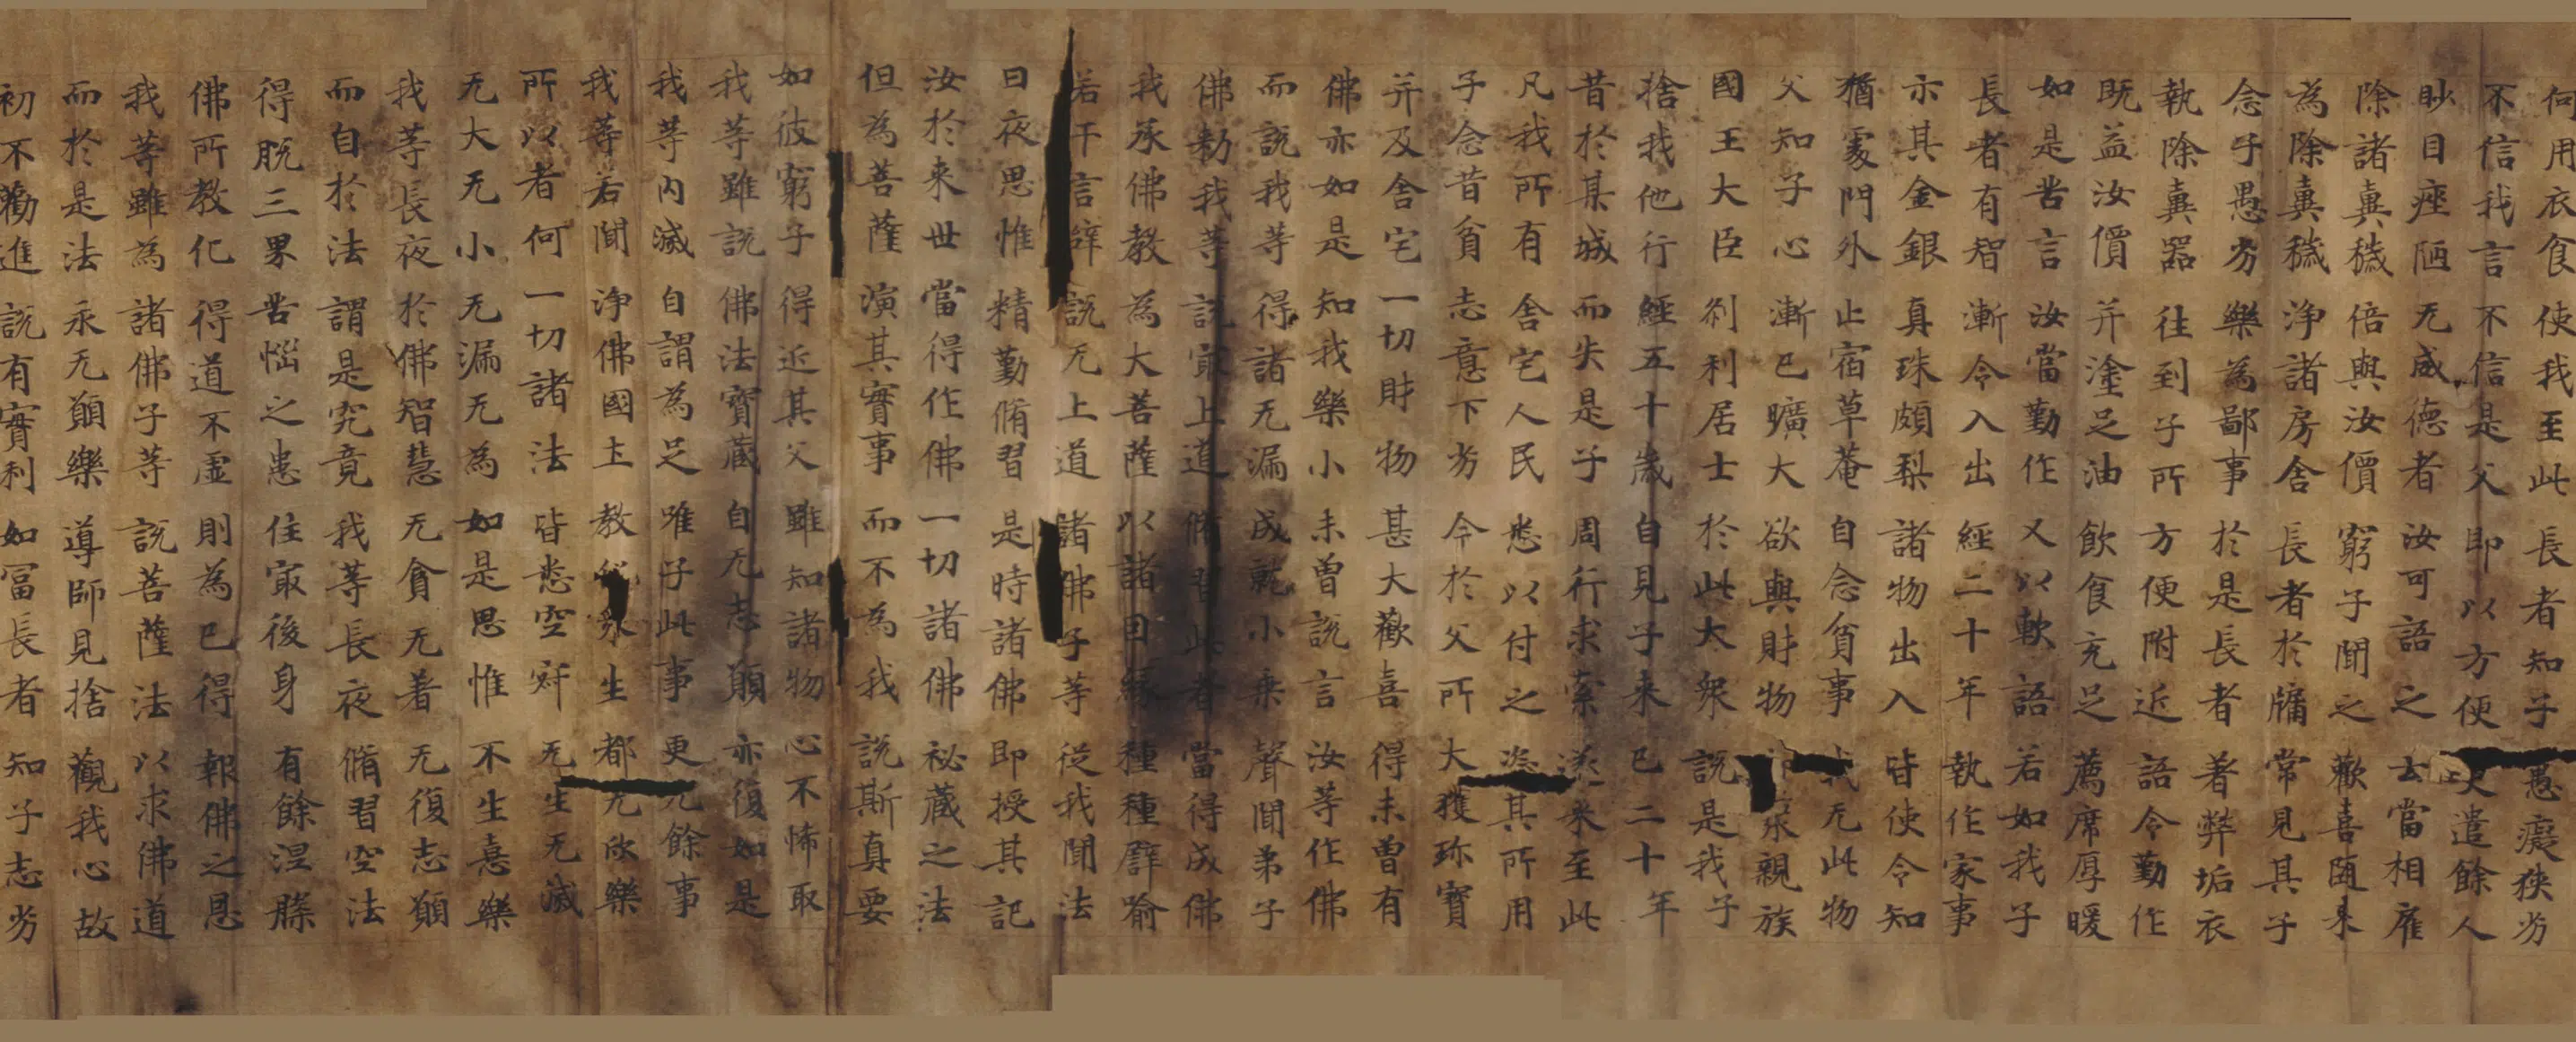 何用衣食 使我至此 長者知子 愚癡狹劣
不信我言 不信是父 即以方便 更遣餘人
眇目痤陋 无威德者 汝可語之 云當相雇
除諸糞穢 倍與汝價 窮子聞之 歡喜随来
為除糞穢 淨諸房舍 長者於牖 常見其子
念子愚劣 樂為鄙事 於是長者 著弊垢衣
執除糞器 往到子所 方便附近 語令勤作
既益汝價 并塗足油 飲食充足 薦席厚暖
如是苦言 汝當勤作 又以軟語 若如我子
長者有智 漸令入出 經二十年 執作家事
示其金銀 真珠頗梨 諸物出入 皆使令知
猶處門外 止宿草菴 自念貧事 我无此物
父知子心 漸已曠大 欲與財物 即聚親族
國王大臣 刹利居士 於此大衆 說是我子
捨我他行 經五十歲 自見子来 已二十年
昔於某城 而失是子 周行求索 遂来至此
凡我所有 舍宅人民 悉以付之 恣其所用
子念昔貧 志意下劣 今於父所 大獲珎寶
并及舍宅 一切財物 甚大歡喜 得未曾有
佛亦如是 知我樂小 未曾說言 汝等作佛
而說我等 得諸无漏 成就小乗 聲聞弟子
佛勑我等 說冣上道 脩習此者 當得成佛
我承佛教 為大菩薩 以諸因縁 種種譬喻
若干言辭 說无上道 諸佛子等 從我聞法
日夜思惟 精勤脩習 是時諸佛 即授其記
汝於来世 當得作佛 一切諸佛 祕藏之法
但為菩薩 演其實事 而不為我 說斯真要
如彼窮子 得近其父 雖知諸物 心不悕取
我等雖說 佛法寶藏 自无志願 亦復如是
我等内滅 自謂為足 唯子此事 更无餘事
我等若聞 淨佛國土 教化衆生 都无欣樂
所以者何 一切諸法 皆悉空寂 无生无滅
无大无小 无漏无為 如是思惟 不生憙樂
我等長夜 於佛智慧 无貪无著 无復志願
而自於法 謂是究竟 我等長夜 脩習空法
得脱三界 苦惱之患 住冣後身 有餘涅槃
佛所教化 得道不虛 則為已得 報佛之恩
我等雖為 諸佛子等 說菩薩法 以求佛道
而於是法 永无願樂 導師見捨 觀我心故
初不勸進 說有實利 如冨長者 知子志劣